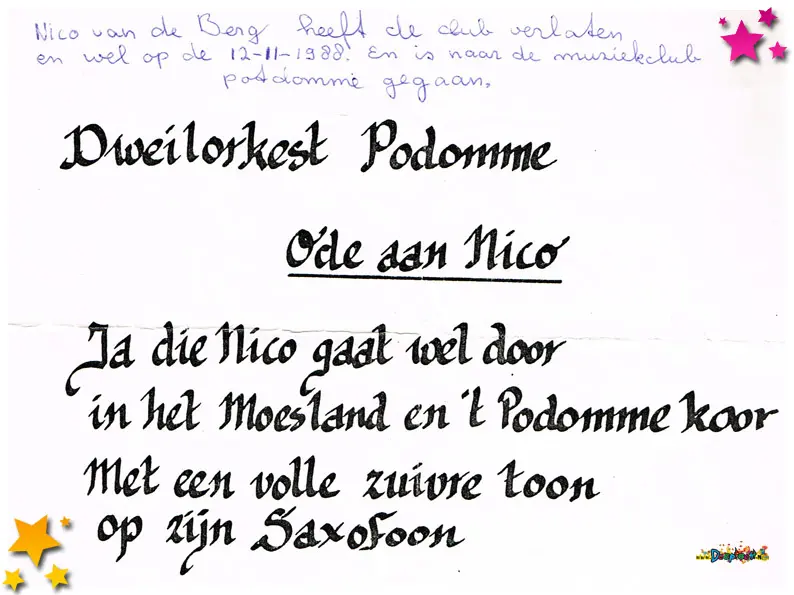 Nico van de Berg heeft de club verlaten
en wel op de 12-11-1988. En is naar de muziekclub
potdomme gegaan.
Dweilorkest Podomme
Ode aan Nico
Ja die Nico gaat wel door
in het Moesland en 't Podomme koor
Met een volle zuivre toon
op zijn Saxofoon